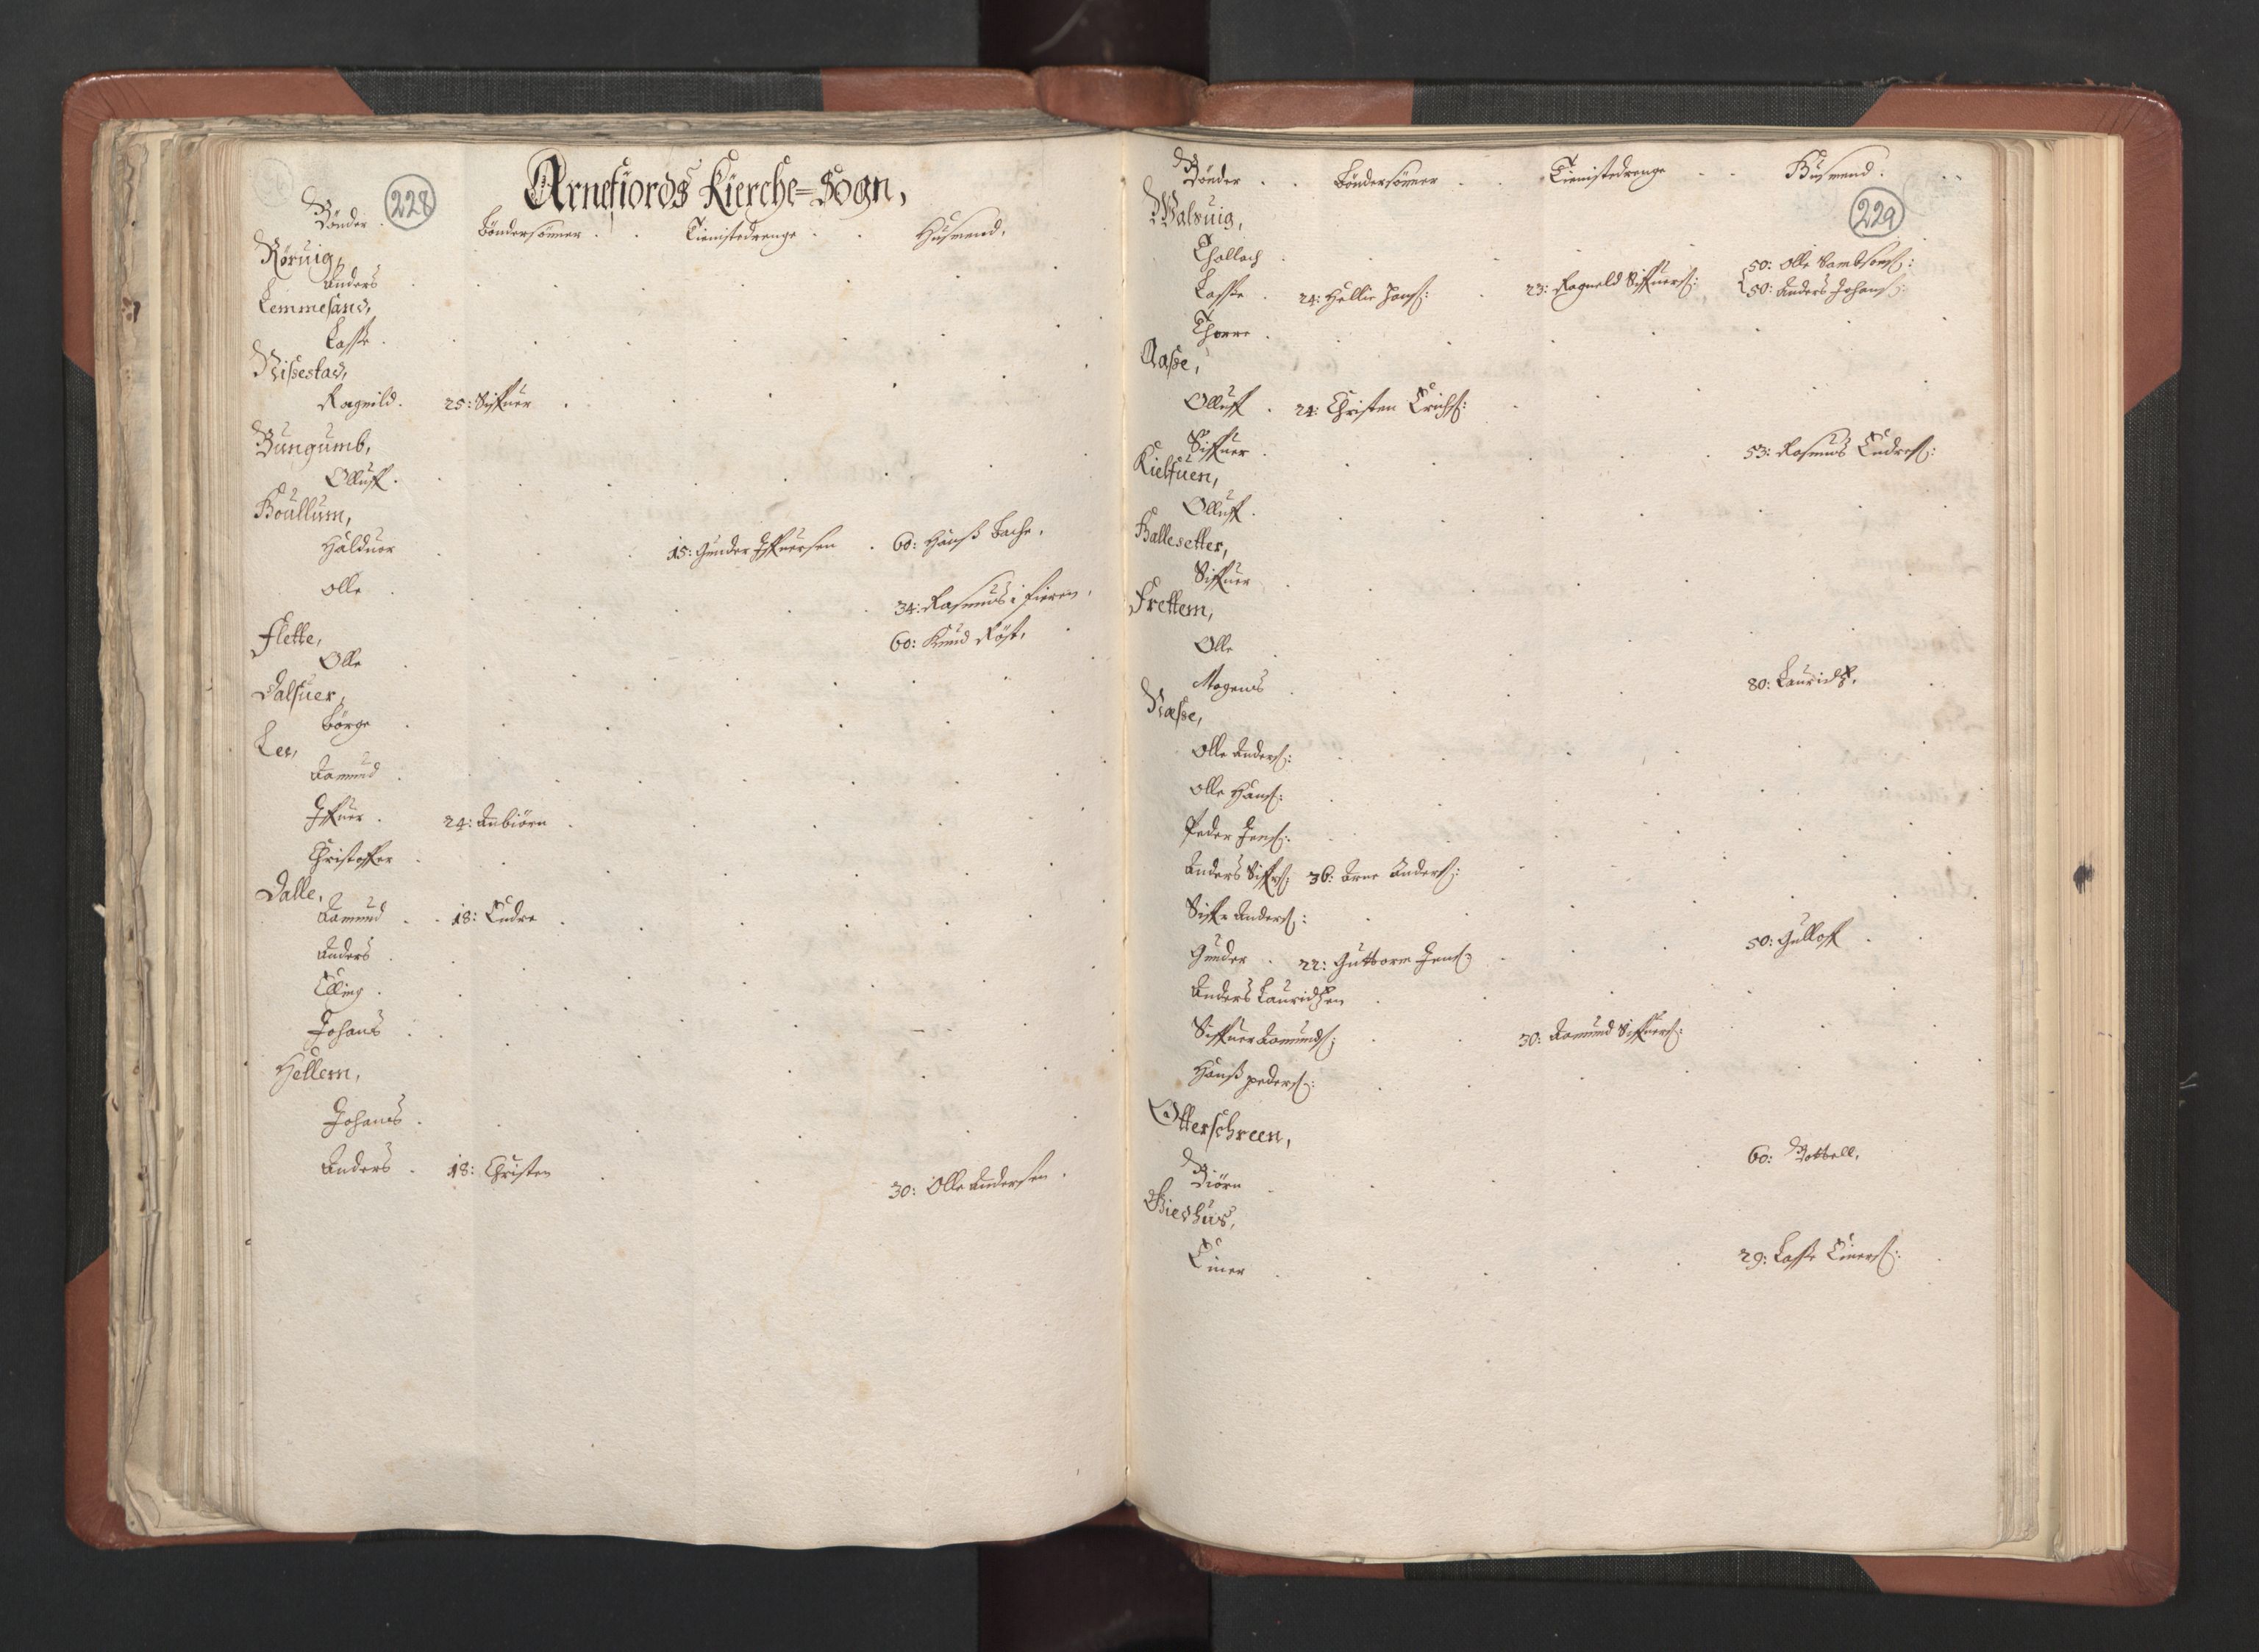 228
Arnefiords Kierche=Sogn,
Bönder . Böndersönner . . Tienistedrenge . . Husmend,
Röruig,
Anders
Lemmesand,
Lasse
Nissestad,
Ragnild . 25: Siffuer
Bungumb,
Olluff
Boullum,
Halduor 15: Gunder Iffuersen . 60: Hanss Bache,
Olle . 34: Rasmus i fieren,
60: Knud Röst,
Flette,
Olle
Dalsuer,
Börge
Lee,
Aamund
Iffuer . 24: Anbiörn
Christoffer
Dalle,
Aamund . . 18: Endre
Anders
Elling
Johans
Hellem,
Johans
Anders . 18: Christen 30: Olle Andersen
229
Bönder . . Böndersönner . . Tienistedrenge . . Husmend.
Walsuig,
Thollach
50: Olle Sambsons:
Lasse . 24: Hellie Jons: 23: Ragnald Siffuers: 50: Anders Johans:
Thorre
Aasse,
Olluff . 24: Christen Erichs:
Siffuer 53: Rasmus Endres:
Kieltuen,
Olluff
Ballesetter,
Siffuer
Frettem,
Olle
Mogens 80: Lauridtz,
Næsse,
Olle Anders:
Olle Hans:
Peder Jens:
Anders Siffr: 36: Arne Anders:
Siffr Anders:
Gunder . 22: Guttorm Jens: 50: Gulloff
Anders Lauridtzen
Siffuer Aamunds: 30: Aamund Siffuers:
Hanss peders:
Otterschreen,
Biörn 60: Bottell,
Giedhus,
Einer 29: Lasse Einers: